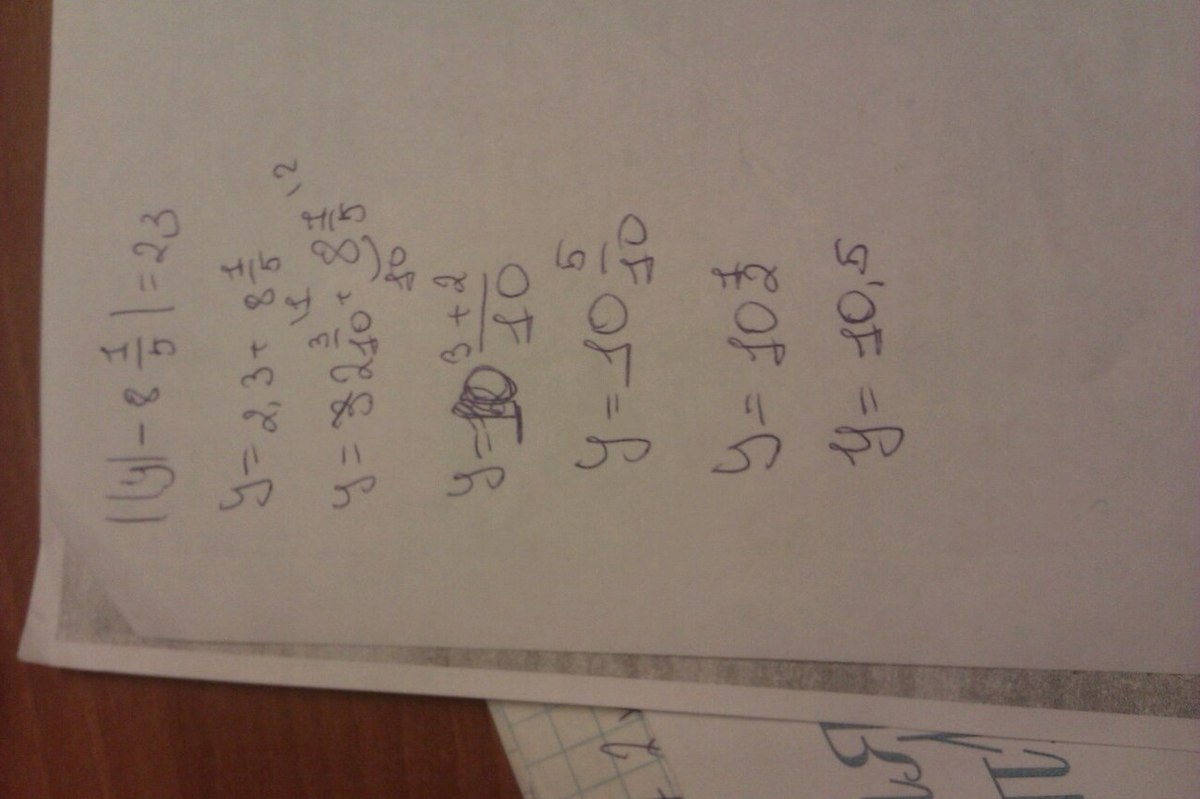 ||y| - 8 1/5 | = 2,3
y = 2,3 + 8 1/5
y = 2 3/10 \1 + 8 1/5 \2
10
y = 10 3+2/10
y = 10 5/10
y = 10 1/2
y = 10,5